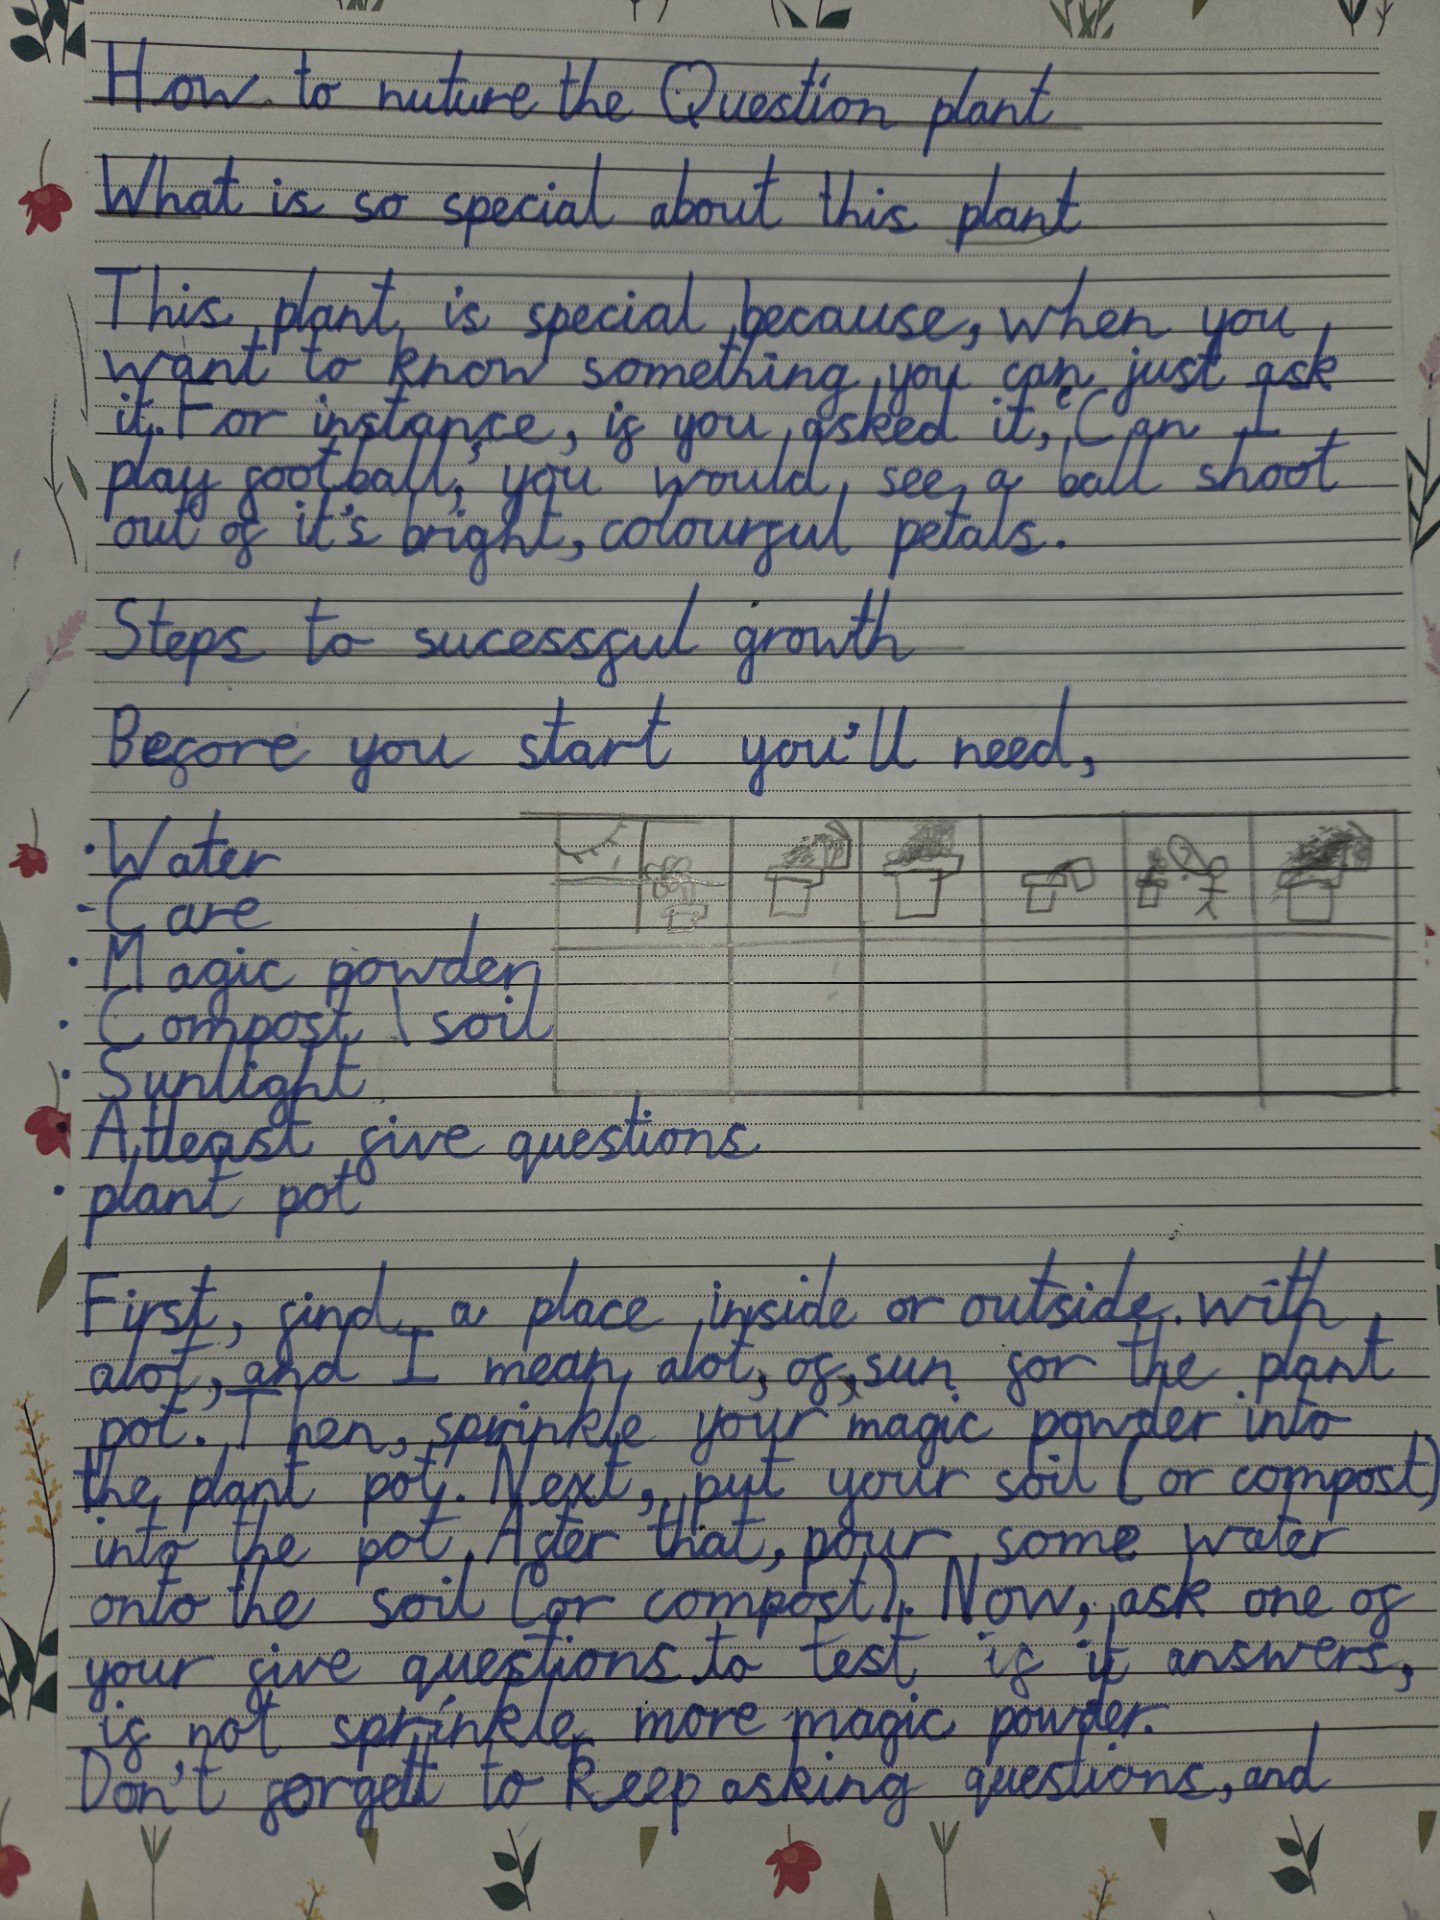 How to nuture the Question plant
What is so special about this plant
This plant is special because, when you
want to know something you can just ask
it. For instance, if you asked it, 'Can I
play football,' you would see a ball shoot
out of it's bright, colourful petals.
Steps to sucessful growth
Before you start you'll need,
• Water
- Care
• Magic powder
• Compost \ soil
• Sunlight
• Atleast five questions
• plant pot
First, find a place inside or outside with
alot, and I mean alot, of, sun for the plant
pot. Then, sprinkle your magic powder into
the plant pot. Next, put your soil (or compost)
into the pot. After that, pour some water
onto the soil (or compost). Now, ask one of
your five questions to test if it answers,
if not sprinkle more magic powder.
Don't forget to keep asking questions, and